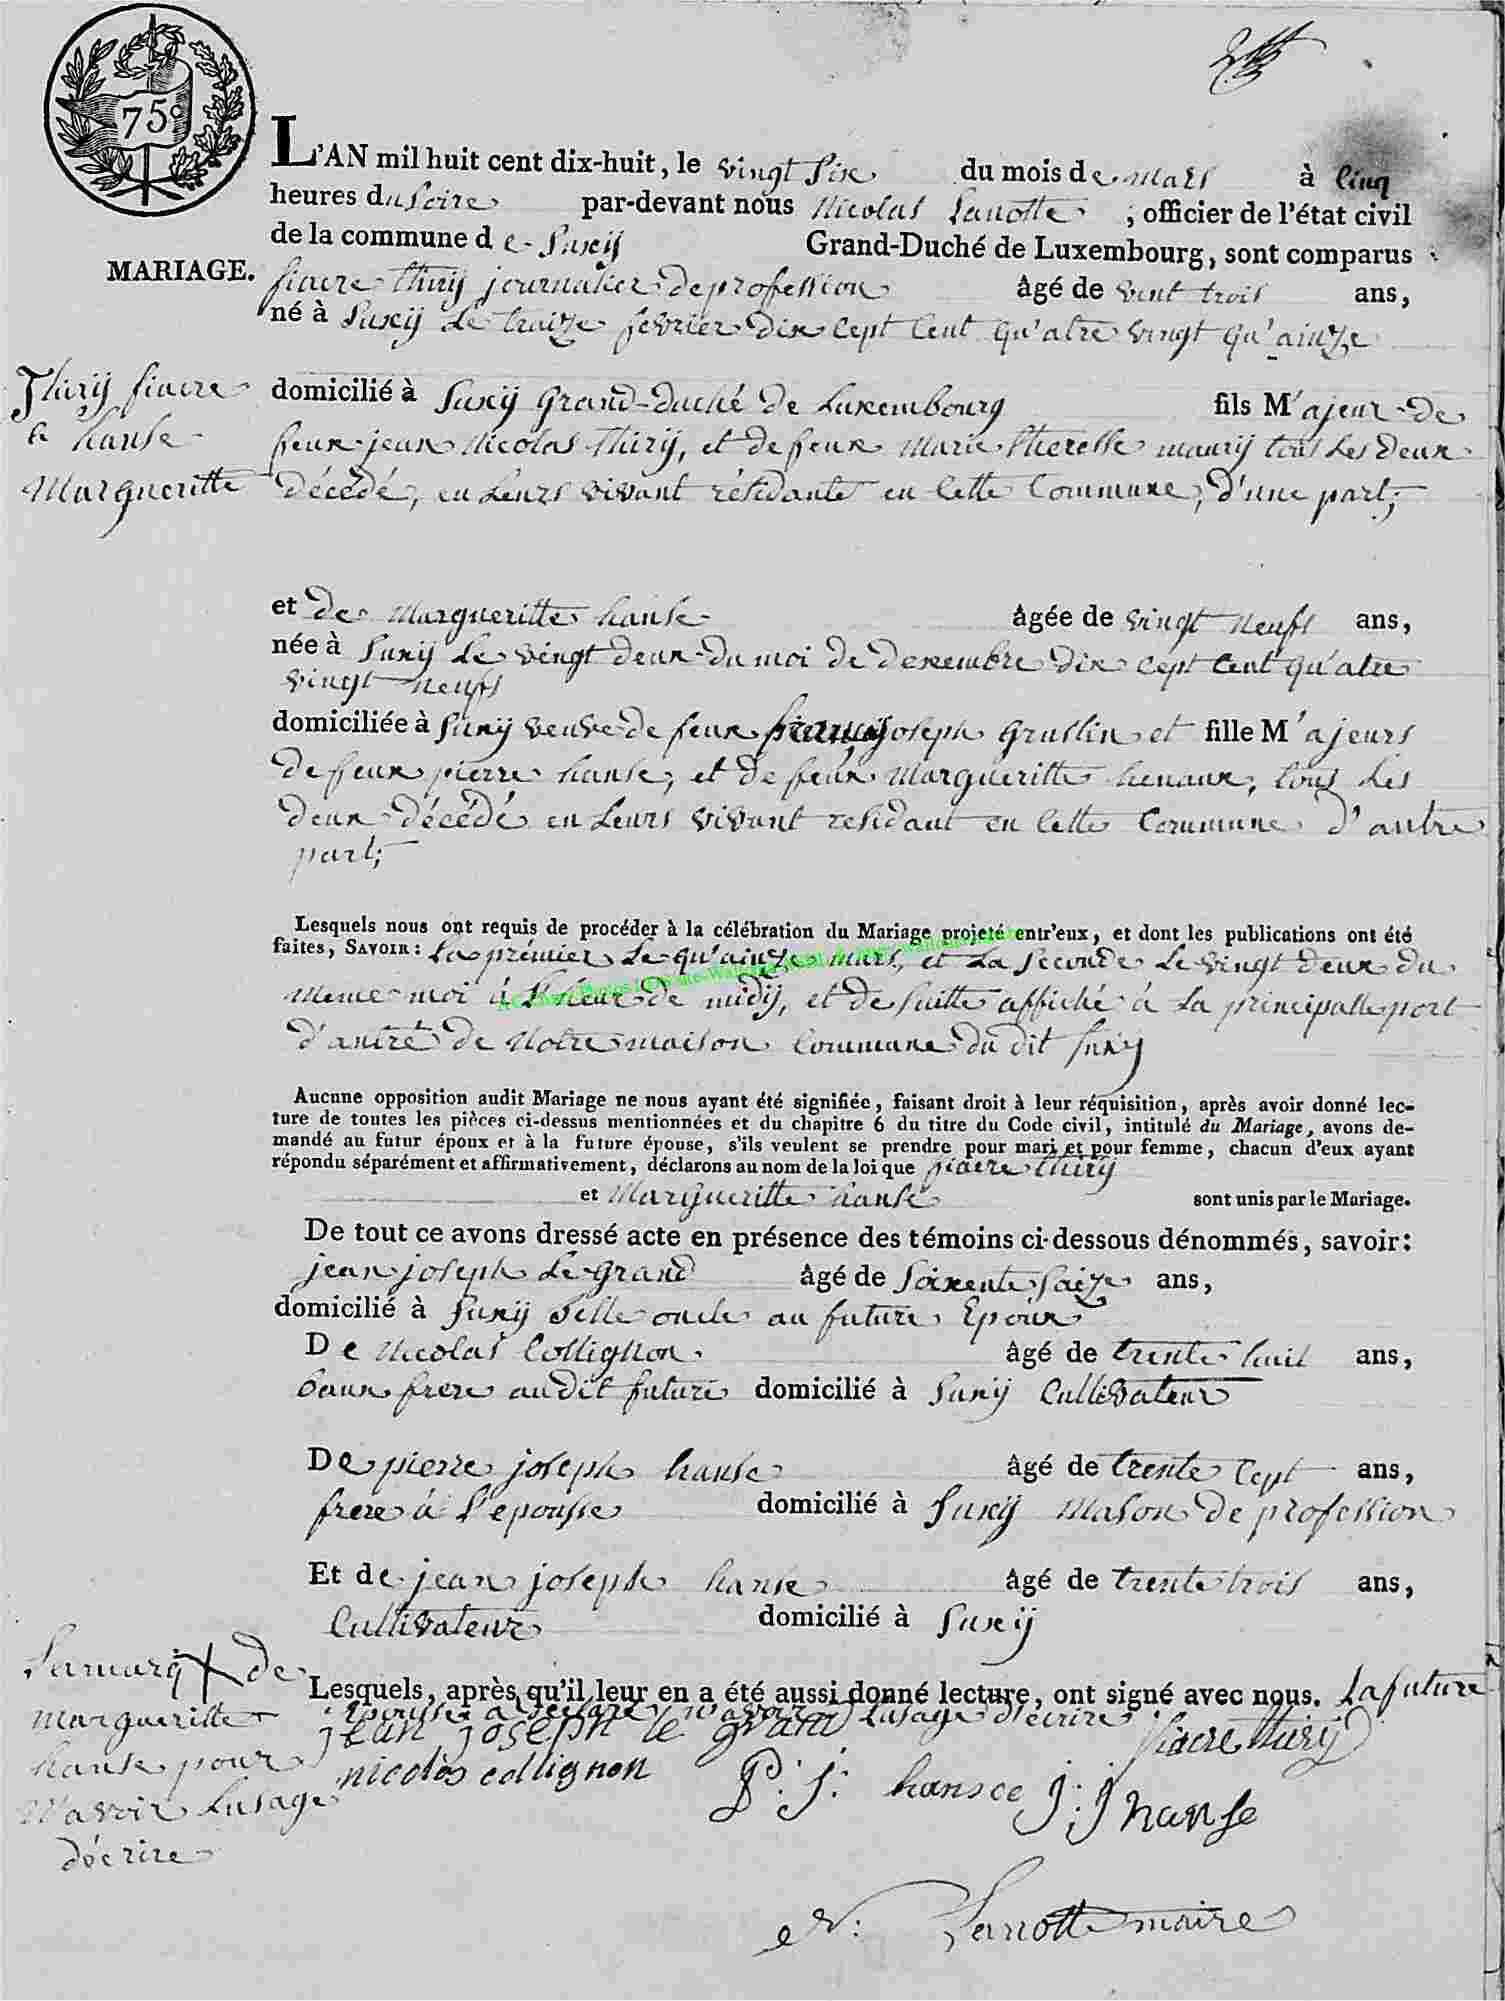 75c
L'AN mil huit cent dix-huit, le vingt six du mois de mars à Cinq
heures du soire par-devant nous Nicolas Lanotte, officier de l'état civil
de la commune de Suxÿ Grand-Duché de Luxembourg, sont comparus
MARIAGE.
fiacre thirÿ journalier de profession âgé de vint trois ans,
né à Suxÿ le traize fevrier dix cept cent qu'atre vingt qu'ainze
Thirÿ fiacre
&
hanse
Margueritte
domicilié à Suxÿ Grand-duché de Luxembourg fils M'ajeur de
feux jean Nicolas Thirÿ, et de feux Marie Theresse maurÿ tous les deux
décédé, en leurs vivant résidante en cette Commune, d'une part;
et de Margueritte hanse âgée de vingt neufs ans,
née à Suxÿ le vingt deux du moi de desembre dix cept cent qu'atre
vingt neufs
domiciliée à Suxÿ veuve de feux joseph Gruslin et fille M'ajeurs
de feux pierre hanse, et de feux Margueritte henaux, tous les
deux décédé en leurs vivant residant en cette Commune d'autre
part;
Lesquels nous ont requis de procéder à la célébration du Mariage projeté entr'eux, et dont les publications ont été
faites, SAVOIR: La prémier le qu'ainze mars, et La seconde le vingt deux du
meme moi à l'heur de midÿ, et de suitte affiché à la principalle port
d'antré de notre maison Commune du dit suxÿ
Aucune opposition audit Mariage ne nous ayant été signifiée, faisant droit à leur réquisition, après avoir donné lec-
ture de toutes les pièces ci-dessus mentionnées et du chapitre 6 du titre du Code civil, intitulé du Mariage, avons de-
mandé au futur époux et à la future épouse, s'ils veulent se prendre pour mari et pour femme, chacun d'eux ayant
répondu séparément et affirmativement, déclarons au nom de la loi que fiacre thirÿ
et Margueritte hanse sont unis par le Mariage.
De tout ce avons dressé acte en présence des témoins ci-dessous dénommés, savoir:
jean joseph Le Grand âgé de soixente saize ans,
domicilié à Suxÿ Belle oncle au future Epoux
De Nicolas Collignon âgé de trente huit ans,
baux frere audit future domicilié à Suxÿ Cultivateur
De pierre joseph hanse âgé de trente cept ans,
frere à L'epousse domicilié à Suxÿ Mason de profession
Et de jean joseph hanse âgé de trente trois ans,
Cultivateur domicilié à Suxÿ
La marq X de
margueritte
hanse pour
n'avoir L'usage
décrire
Lesquels, après qu'il leur en a été aussi donné lecture, ont signé avec nous. La future
Epousse a déclaré n'avoir L'usage d'écrire
jean joseph le grand fiacre thirÿ
nicolas collignon P: J: hansce J: J hanse
N: Lanotte maire